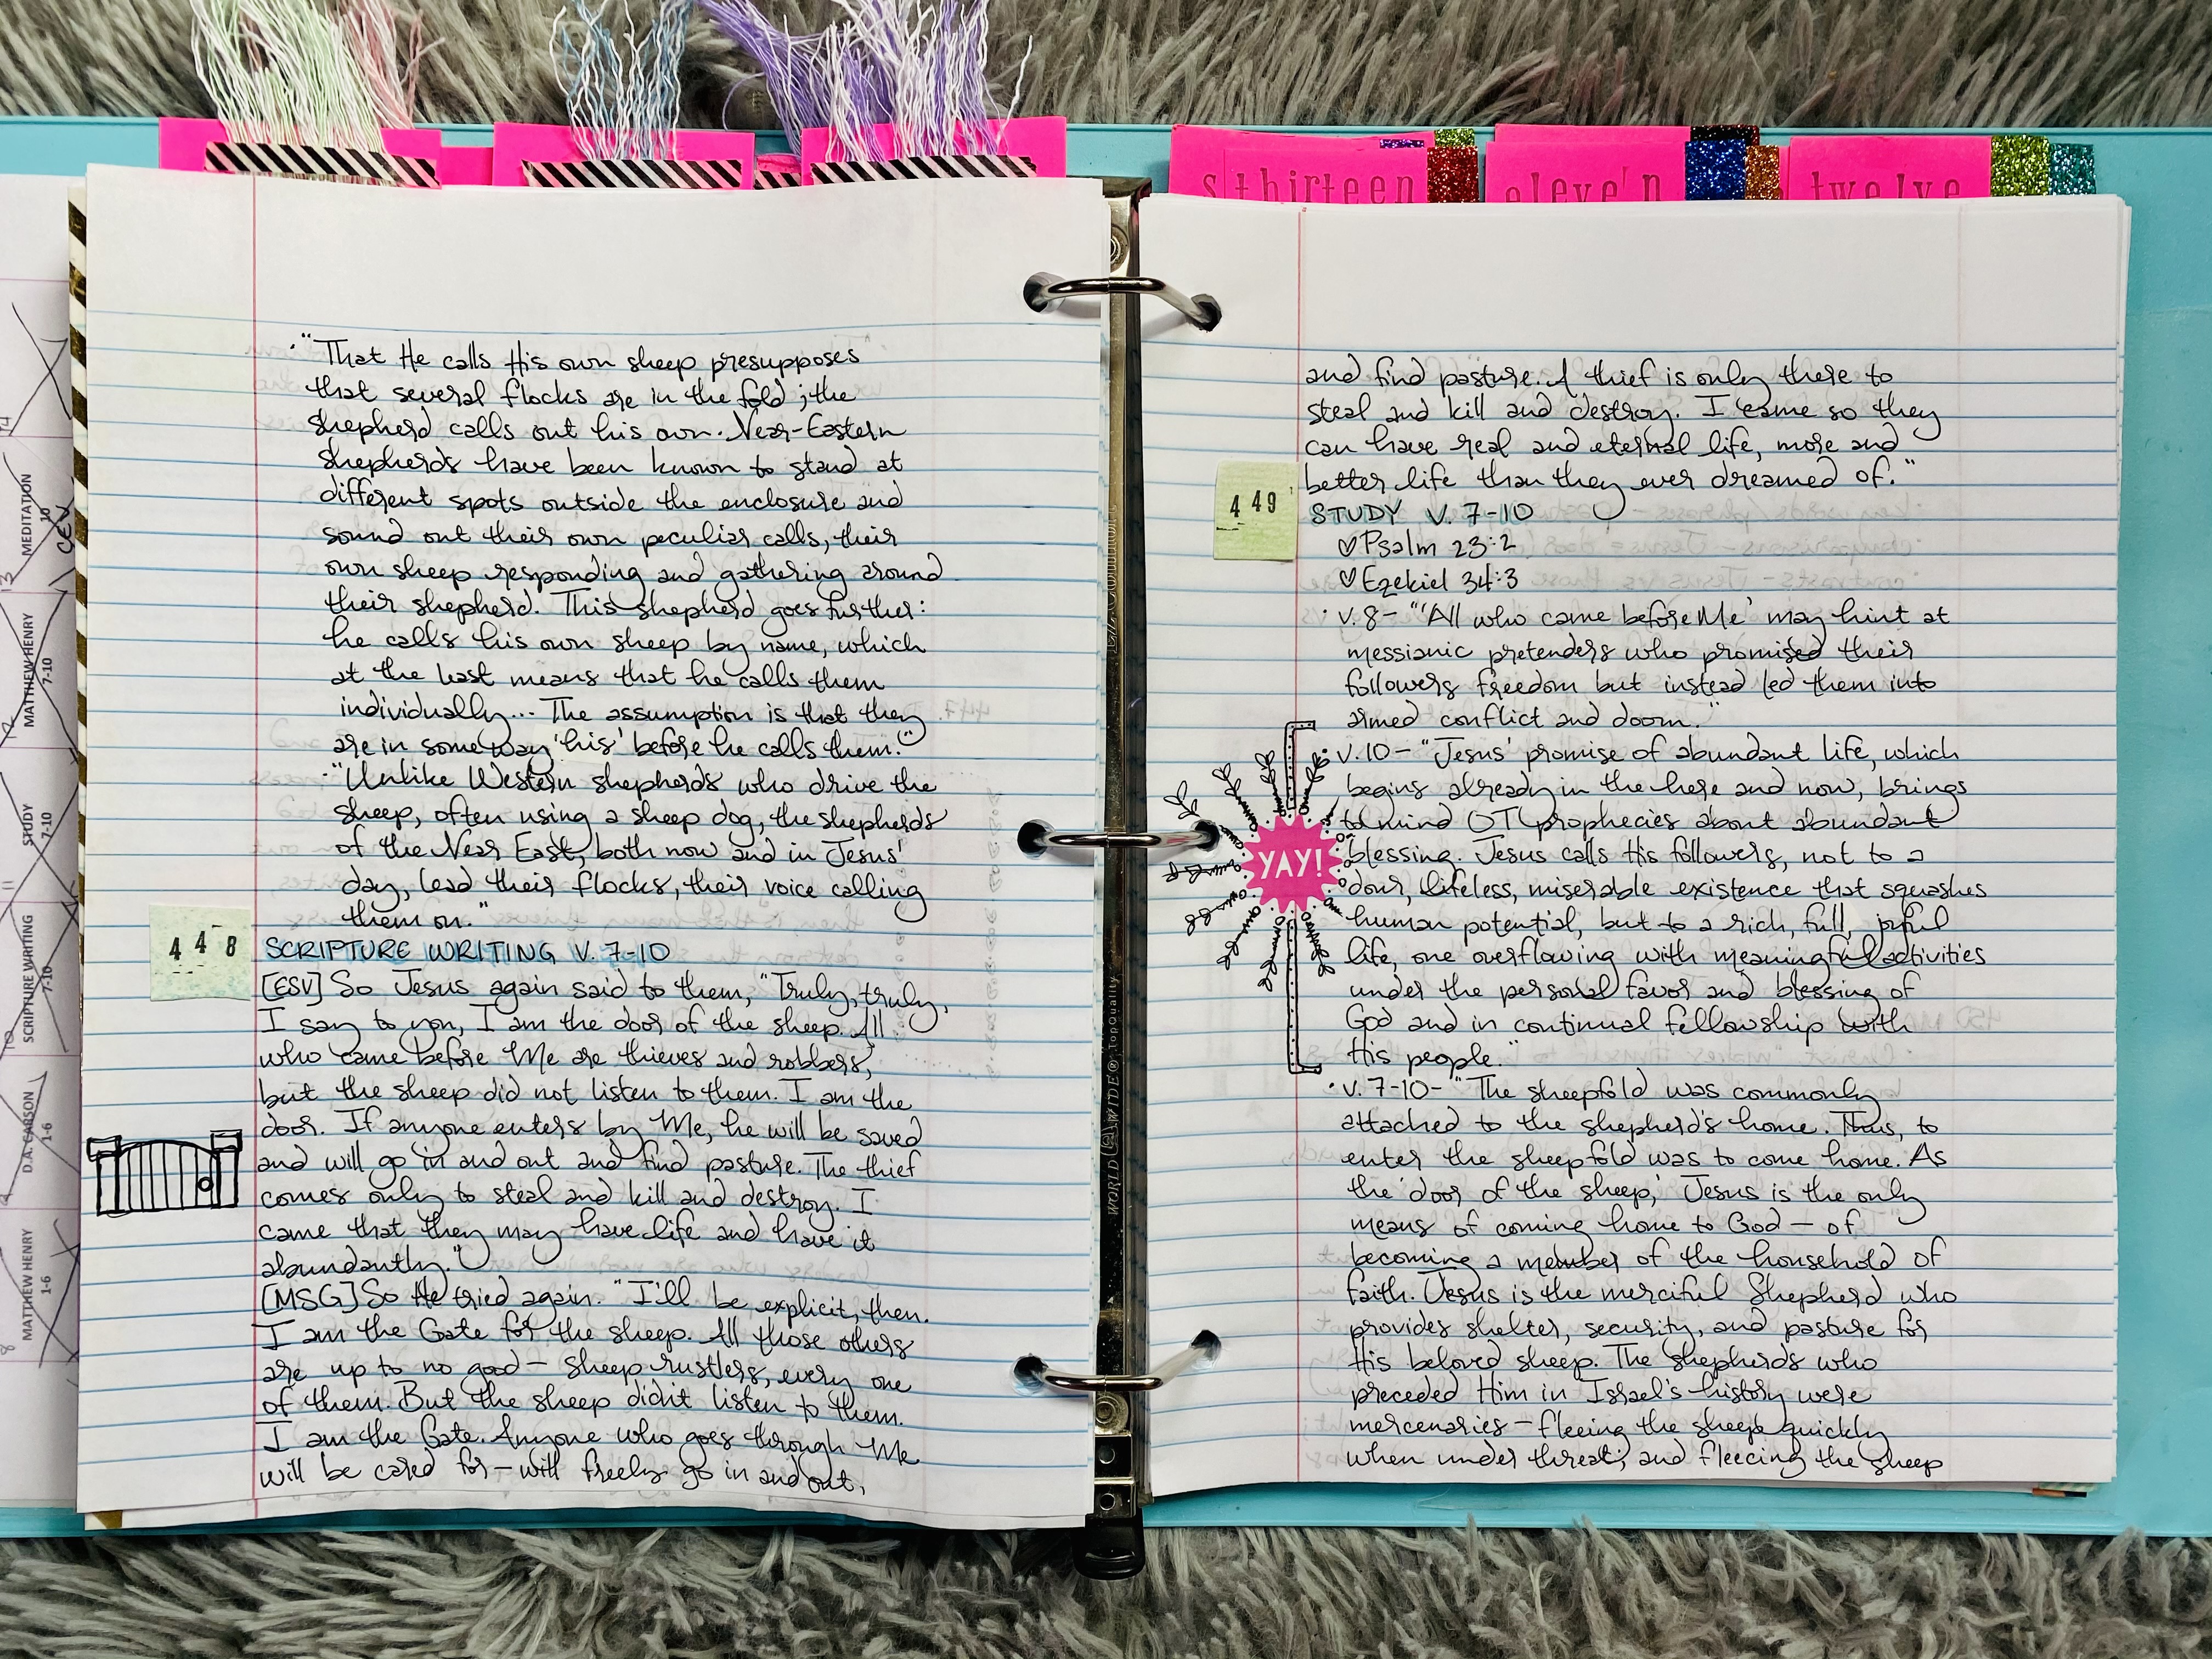 s thirteen
eleven
twelve
14
MEDITATION
10
CEV
13
MATTHEW HENRY
7-10
12
STUDY
7-10
11
SCRIPTURE WRITING
7-10
10
D.A. CARSON
1-6
9
MATTHEW HENRY
1-6
8
• "That He calls His own sheep presupposes
that several flocks are in the fold; the
shepherd calls out his own. Near-Eastern
shepherds have been known to stand at
different spots outside the enclosure and
sound out their own peculiar calls, their
own sheep responding and gathering around
their shepherd. This shepherd goes further:
he calls his own sheep by name, which
at the least means that he calls them
individually... The assumption is that they
are in some way 'his' before he calls them."
• "Unlike Western shepherds who drive the
sheep, often using a sheep dog, the shepherds
of the Near East, both now and in Jesus'
day, lead their flocks, their voice calling
them on."
448
SCRIPTURE WRITING V. 7-10
[ESV] So Jesus again said to them, "Truly, truly,
I say to you, I am the door of the sheep. All
who came before Me are thieves and robbers,
but the sheep did not listen to them. I am the
door. If anyone enters by Me, he will be saved
and will go in and out and find pasture. The thief
comes only to steal and kill and destroy. I
came that they may have life and have it
abundantly."
[MSG] So He tried again. "I'll be explicit, then.
I am the Gate for the sheep. All those others
are up to no good — sheep rustlers, every one
of them. But the sheep didn't listen to them.
I am the Gate. Anyone who goes through Me
will be cared for — will freely go in and out,
WORLD WIDE® Top Quality
and find pasture. A thief is only there to
steal and kill and destroy. I came so they
can have real and eternal life, more and
better life than they ever dreamed of."
449
STUDY V. 7-10
♡ Psalm 23:2
♡ Ezekiel 34:3
• v. 8 - "'All who came before Me' may hint at
messianic pretenders who promised their
followers freedom but instead led them into
armed conflict and doom."
• v. 10 - "Jesus' promise of abundant life, which
begins already in the here and now, brings
to mind OT prophecies about abundant
YAY!
blessing. Jesus calls His followers, not to a
dour, lifeless, miserable existence that squashes
human potential, but to a rich, full, joyful
life, one overflowing with meaningful activities
under the personal favor and blessing of
God and in continual fellowship with
His people."
• v. 7-10 - "The sheepfold was commonly
attached to the shepherd's home. Thus, to
enter the sheepfold was to come home. As
the 'door of the sheep,' Jesus is the only
means of coming home to God — of
becoming a member of the household of
faith. Jesus is the merciful Shepherd who
provides shelter, security, and pasture for
His beloved sheep. The shepherds who
preceded Him in Israel's history were
mercenaries — fleeing the sheep quickly
when under threat, and fleecing the sheep